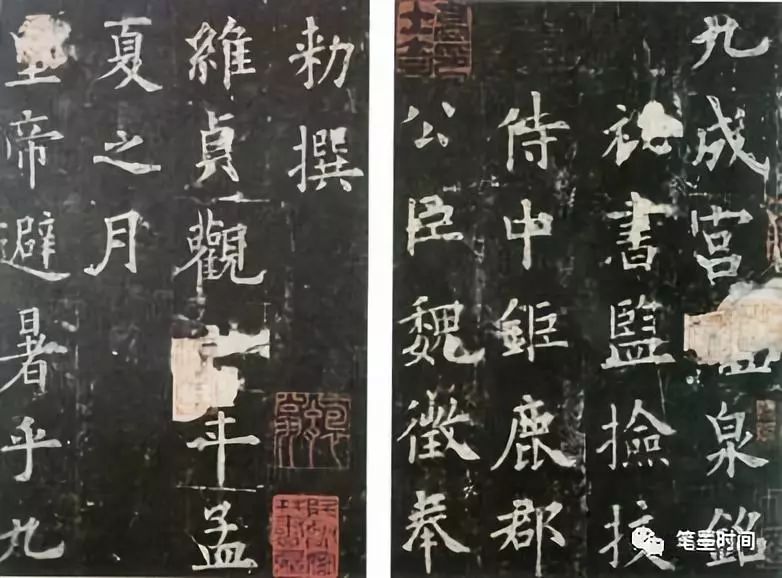 九成宮醴泉銘
祕書監撿挍
侍中鉅鹿郡
公臣魏徵奉
勑撰
維貞觀六年孟
夏之月
皇帝避暑乎九
笔墨时间